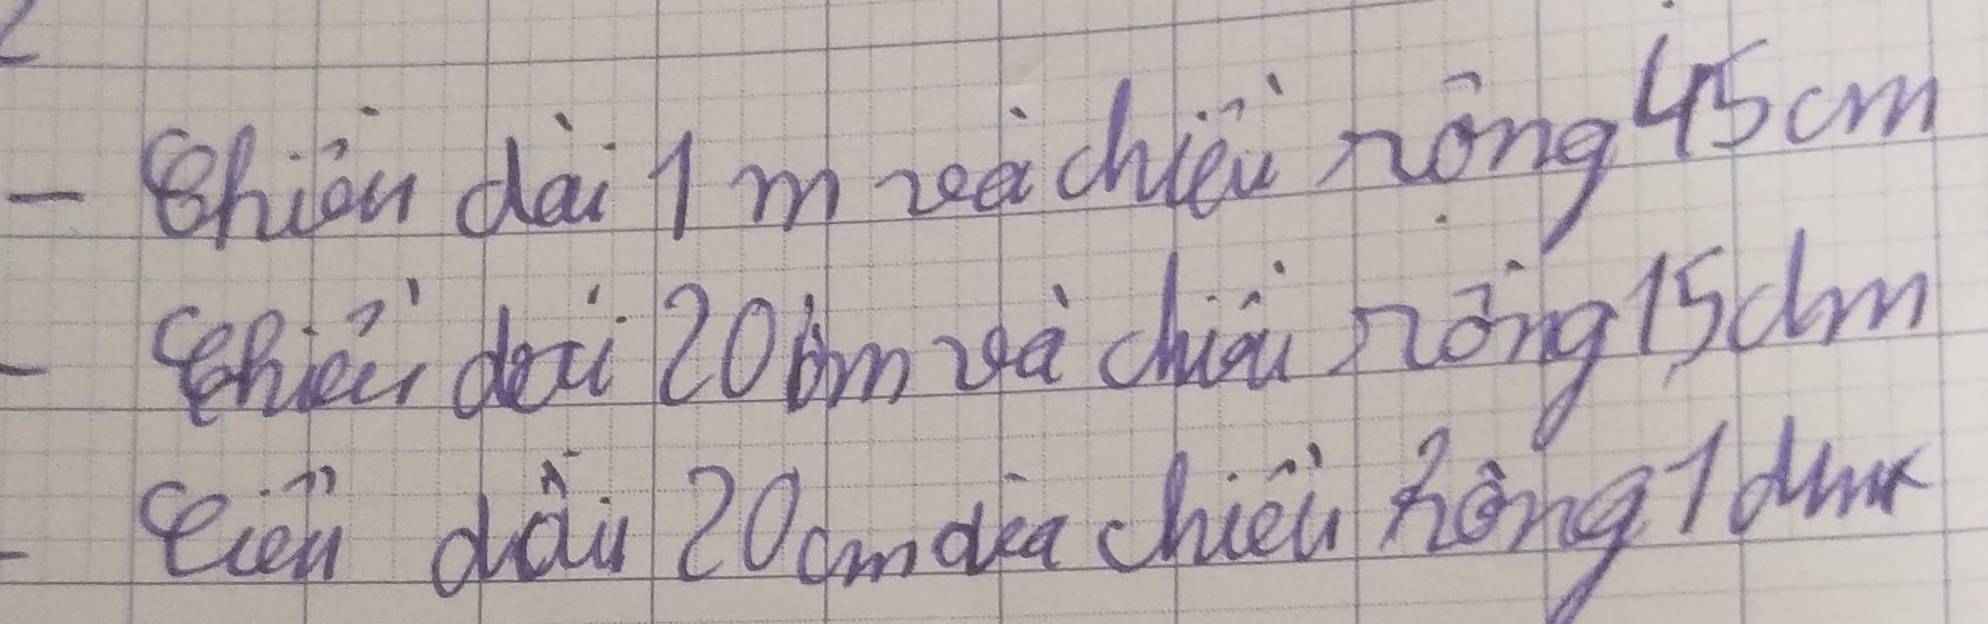 - Chiều dài 1 m và chiều rộng 45 cm
- Chiều dài 20 cm và chiều rộng 15 dm
- Ciều dài 20 cm và chiều rộng 1 dm